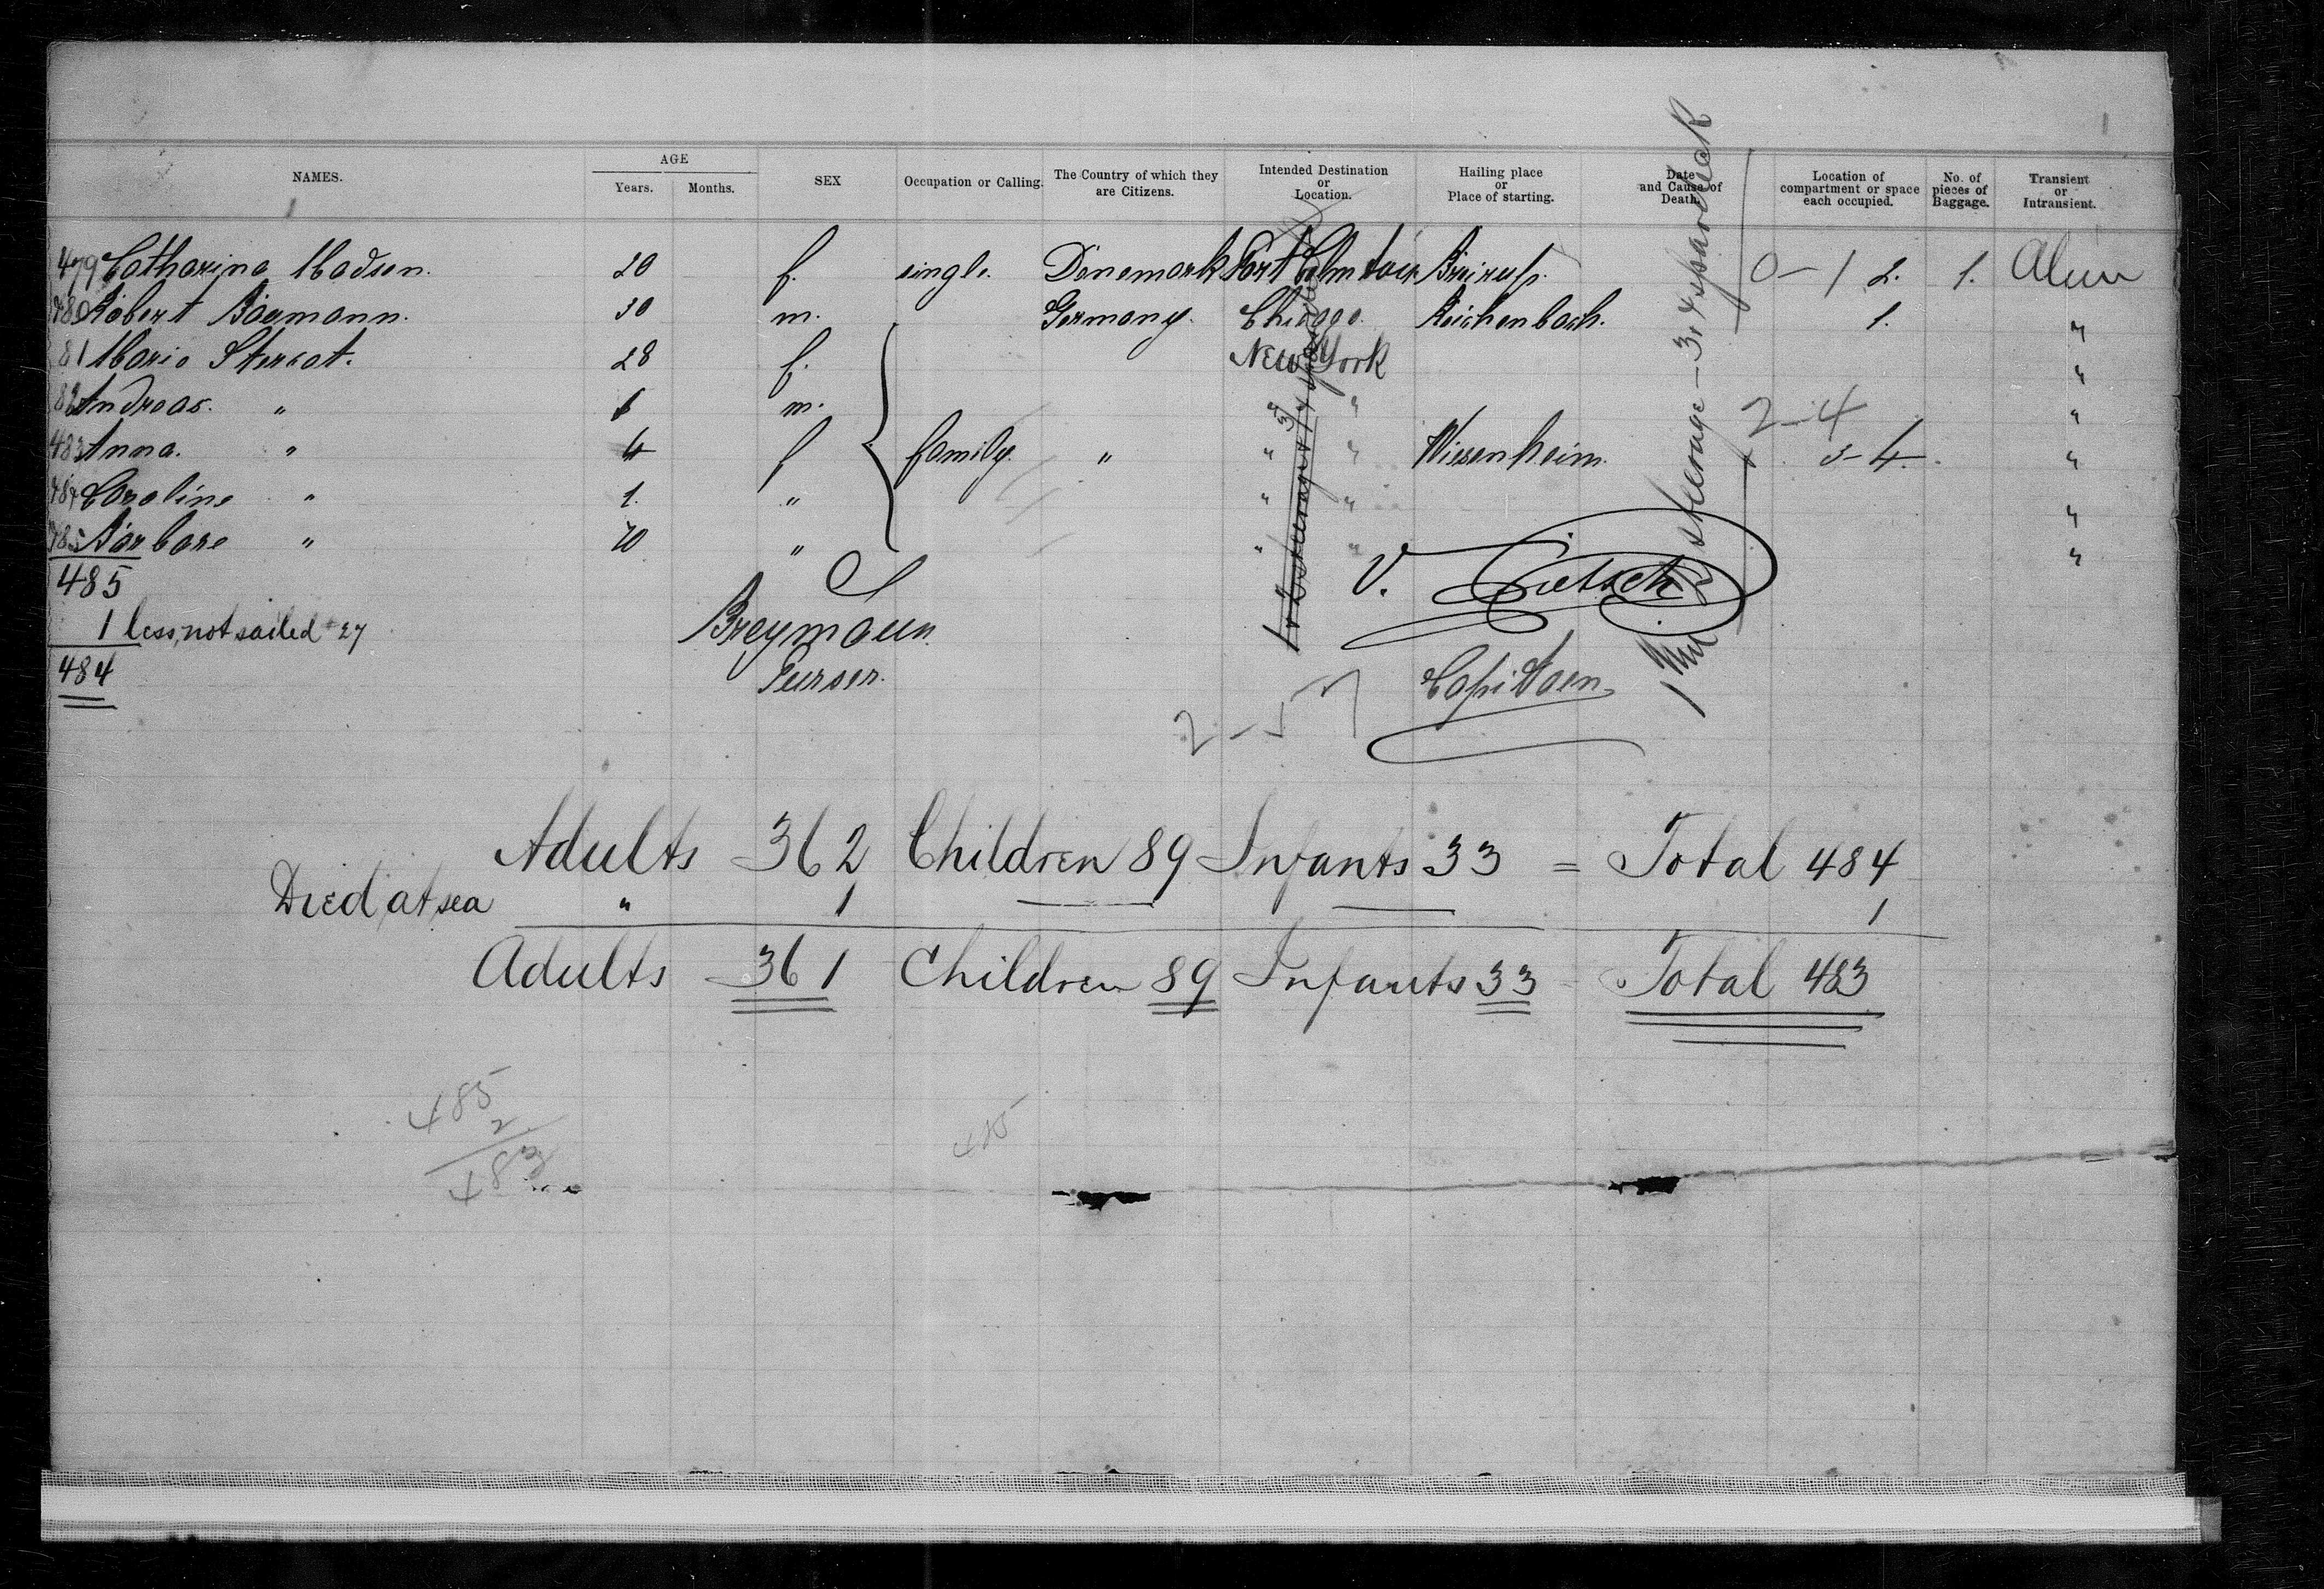 NAMES. AGE Years. Months. SEX Occupation or Calling. The Country of which they are Citizens. Intended Destination or Location. Hailing place or Place of starting. Date and Cause of Death. Location of compartment or space each occupied. No. of pieces of Baggage. Transient or Intransient.
479 Catharina Madsen. 20 f. single. Denemark Port 0-1 2. 1. Alien
480 Robert Baumann. 30 m. Germany. Chicago. Reichenbach. 1. "
81 Maria 28 f. New York "
82 Andreas. " m. " " 2-4 "
483 Anna. " 4 f family. " " " Wissenheim. 3-4. "
484 Caroline " 1. " " " "
485 Barbara " 70 " " " "
485
1 less, not sailed # 27
484
Breymann
Purser.
V.
Capitaen
Adults 362 Children 89 Infants 33 = Total 484
Died at sea " 1 — — 1
Adults 361 Children 89 Infants 33 Total 483
485
2
483
485